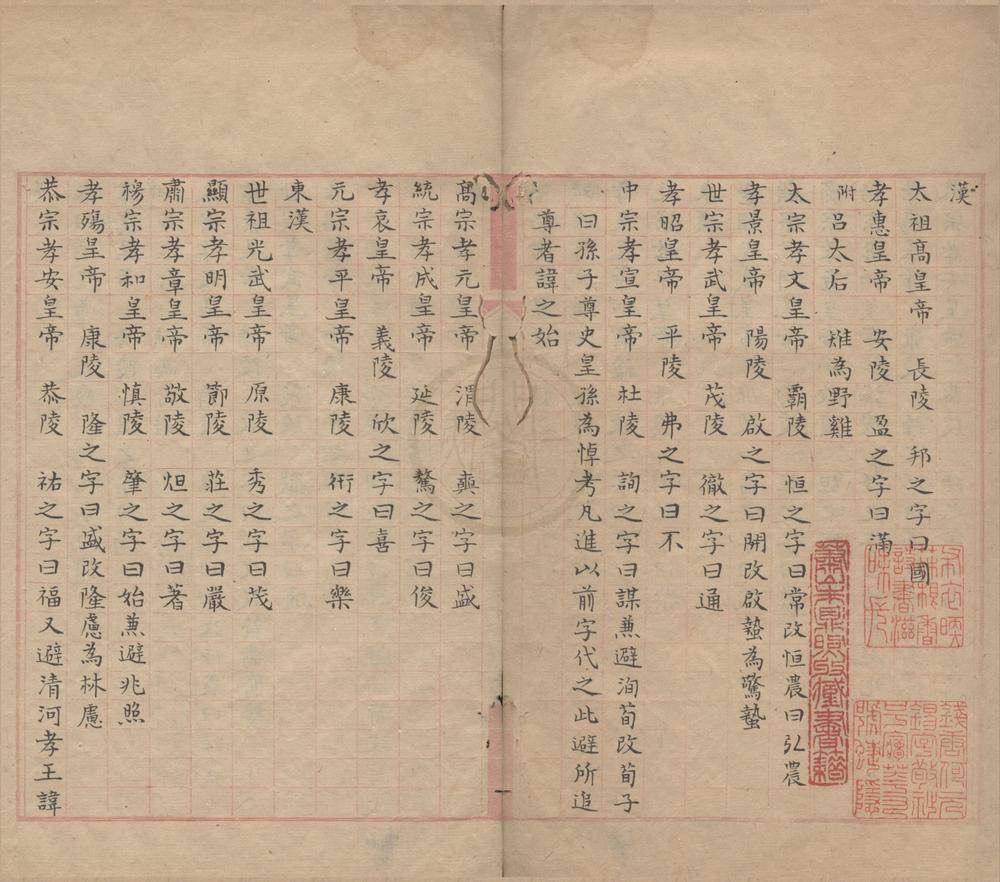 漢
太祖髙皇帝　長陵　邦之字曰國
孝惠皇帝　安陵　盈之字曰滿
附吕太后　雉為野雞
太宗孝文皇帝　霸陵　恒之字曰常改恒農曰弘農
孝景皇帝　陽陵　啟之字曰開改啟蟄為驚蟄
世宗孝武皇帝　茂陵　徹之字曰通
孝昭皇帝　平陵　弗之字曰不
中宗孝宣皇帝　杜陵　詢之字曰謀兼避洵荀改荀子
曰孫子尊史皇孫為悼考凡進以前字代之此避所追
尊者諱之始
髙宗孝元皇帝　渭陵　奭之字曰盛
統宗孝成皇帝　延陵　驁之字曰俊
孝哀皇帝　義陵　欣之字曰喜
元宗孝平皇帝　康陵　衎之字曰樂
東漢
世祖光武皇帝　原陵　秀之字曰茂
顯宗孝明皇帝　節陵　莊之字曰嚴
肅宗孝章皇帝　敬陵　炟之字曰著
穆宗孝和皇帝　慎陵　肇之字曰始兼避兆照
孝殤皇帝　康陵　隆之字曰盛改隆慮為林慮
恭宗孝安皇帝　恭陵　祜之字曰福又避清河孝王諱